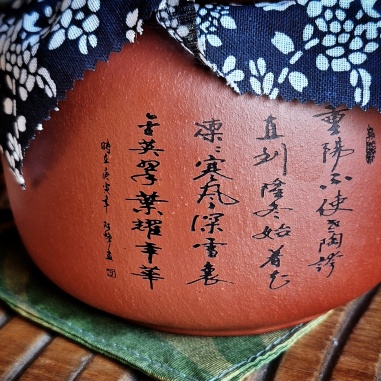 重陽不使陶
直到隆冬始着花
凜凜寒風深雪裏
金英翠葉耀年華
時在庚寅年